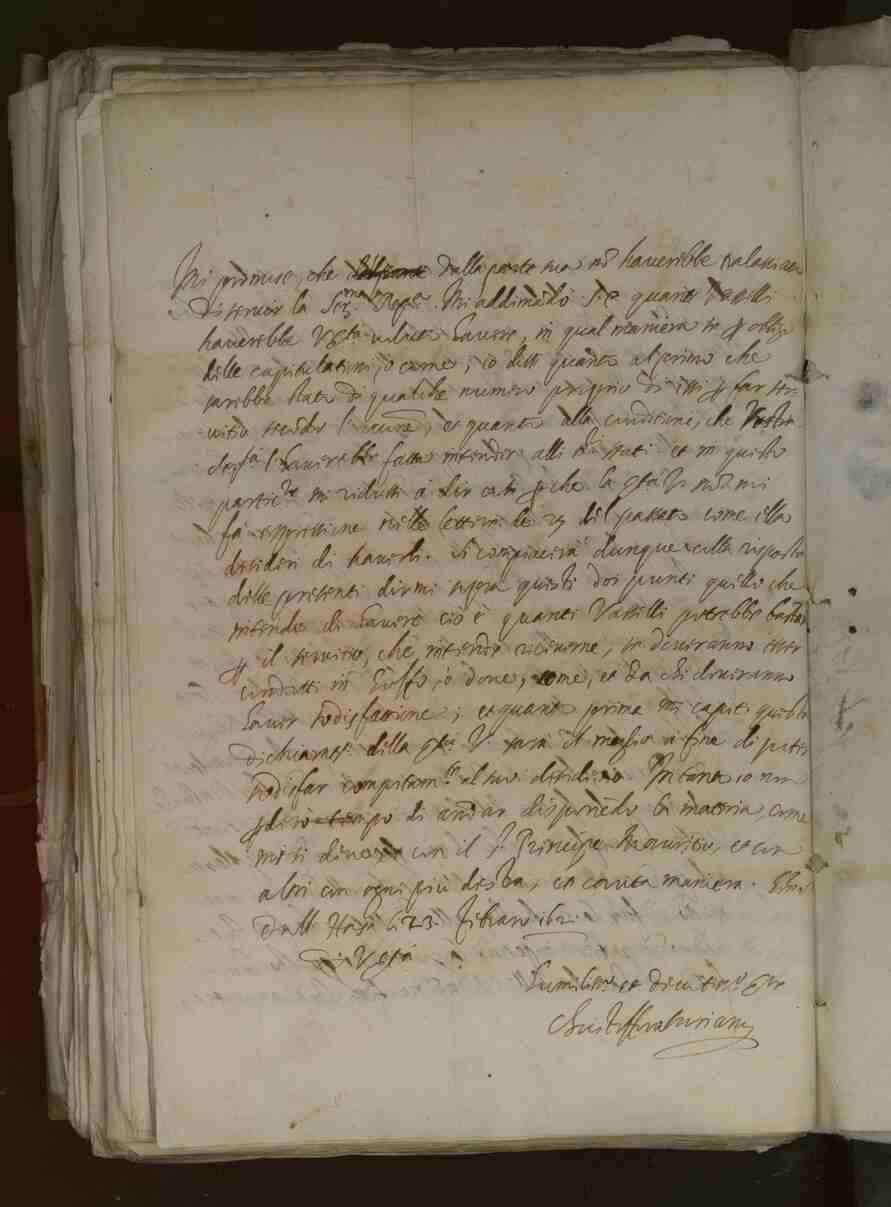 Mi promise, che dalla parte sua nõ haverebbe tralasciato
di servir la Ser.ma Rep.ca. Mi addimãdò se quanti Vasselli
haverebbe V. S.tà voluto havere, in qual maniera
delle capitulationi, ò come, io dissi quanto al primo che
sarebbe stato di qualche numero proprio di essi far ser-
vitio et quanto alla conditione, che Vostra
Ser.tà l'haverebbe fatto intender alli SS.ri stati. et in questo
partic.re mi ridussi à dir così ꝑche la S.tà V. nõ mi
fa espressione nelle lettere de 29 del passato come ella
desideri di haverli. Si compiacerà dunque nella risposta
delle presenti dirmi sopra questi doi punti quello che
intende di havere cio è quanti Vasselli potrebbe bastar
ꝑ il servitio, che intende riceverne, se doveranno esser
condotti in Golfo, ò dove, come, et da chi doveranno
haver sodisfattione; et quanto prima mi capiti questa
dichiarat.e della S.tà V. sarà il meglio à fine di poter
sodisfar compitam.te al suo desiderio. In tanto io non
ꝑderò tempo di andar disponẽdo la materia, come
il S.r Principe Mauritio, et con
altri con ogni più destra, et cauta maniera.
Dall' Haya li 23. febraro 162
Di V. S.tà
humiliss.o et devotiss.o ser.
Christofforo Suriano